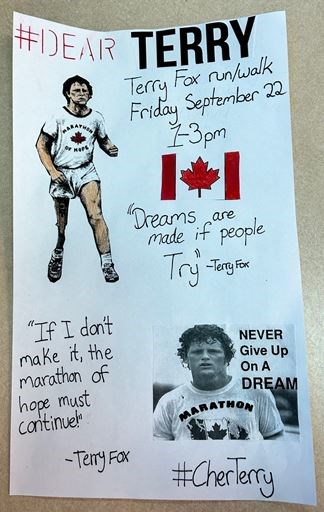 #DEAR TERRY
Terry Fox run/walk
Friday September 22
1-3pm
MARATHON
OF HOPE
"Dreams are
made if people
Try" -Terry Fox
"If I don't
make it, the
marathon of
hope must
continue!"
-Terry Fox
NEVER
Give Up
On A
DREAM
MARATHON
#CherTerry